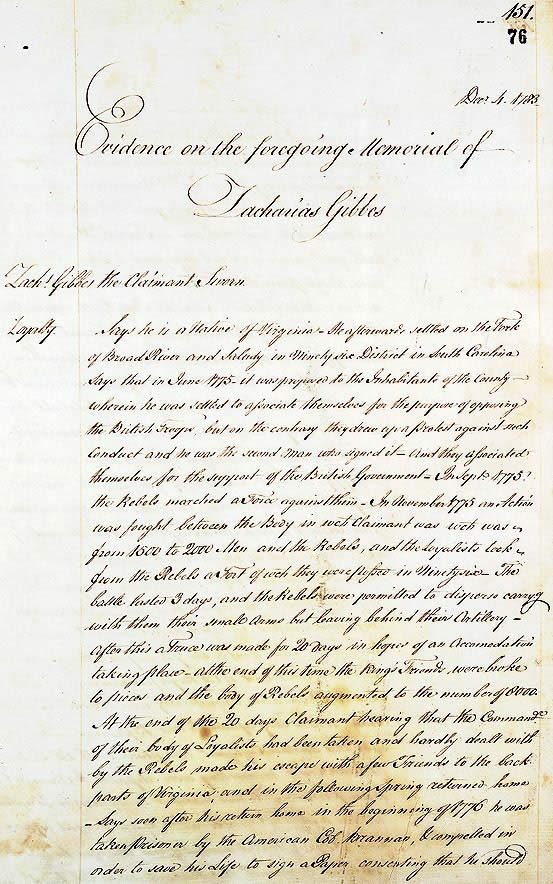 151.
76
Decr. 4. 1783.
Evidence on the foregoing Memorial of
Zacharias Gibbes
Zachs. Gibbes the Claimant Sworn.
Loyalty
Says he is a Native of Virginia - He afterwards settled on the Fork
of Broad River and Saludy in Ninety Six District in South Carolina
Says that in June 1775 - it was proposed to the Inhabitants of the County -
wherein he was settled to associate themselves for the purpose of opposing
the British Troops, but on the contrary they drew up a Protest against such
Conduct and he was the second Man who signed it - And they associated
themselves for the support of the British Government - In Septr. 1775.
the Rebels marched a Force against them - In November 1775 an Action
was fought between the Body in wch Claimant was wch was
from 1500 to 2000 Men and the Rebels, and the Loyalists took
from the Rebels a Fort of wch they were possed in Ninety six - The
battle lasted 3 days, and the Rebels were permitted to disperse carryg
with them their small Arms but leaving behind their Artillery -
after this a Truce was made for 20 days in hopes of an Accomodation
taking place - at the end of this time the King's Friends were broke
to pieces and the body of Rebels augmented to the number of 8000.
At the end of the 20 days Claimant hearing that the Commandr.
of their body of Loyalists had been taken and hardly dealt with
by the Rebels made his escape with a few Friends to the back
parts of Virginia and in the following Spring returned home
- Says soon after his return home in the beginning of 1776 he was
taken Prisoner by the American Col. Brannan, & compelled in
order to save his Life to sign a Paper consenting that he should